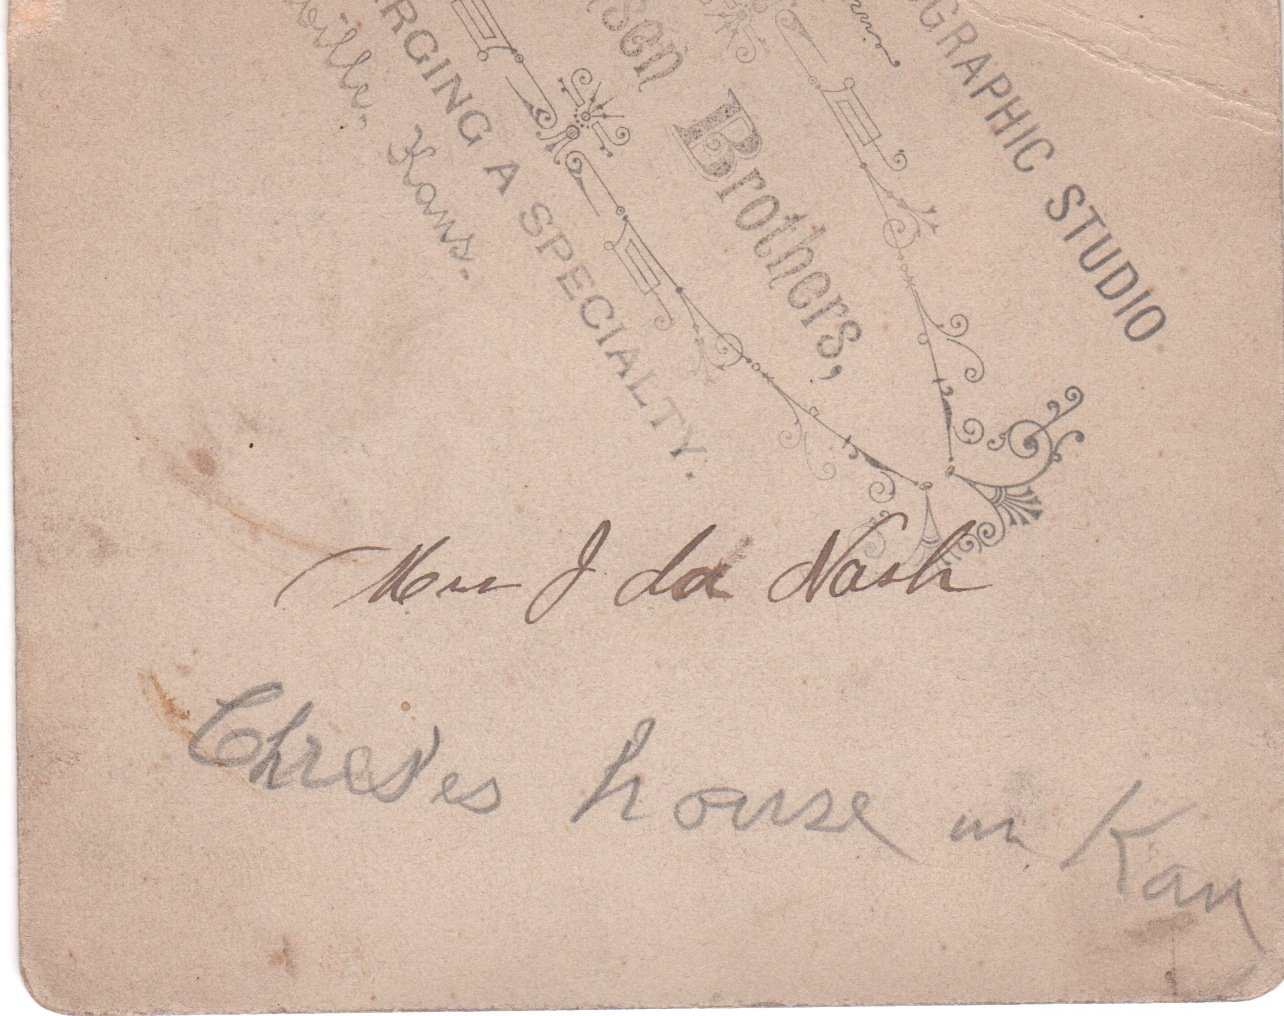 GRAPHIC STUDIO
Brothers,
RGING A SPECIALTY.
ville, Kans.
Mrs Ida Nash
house in Kan